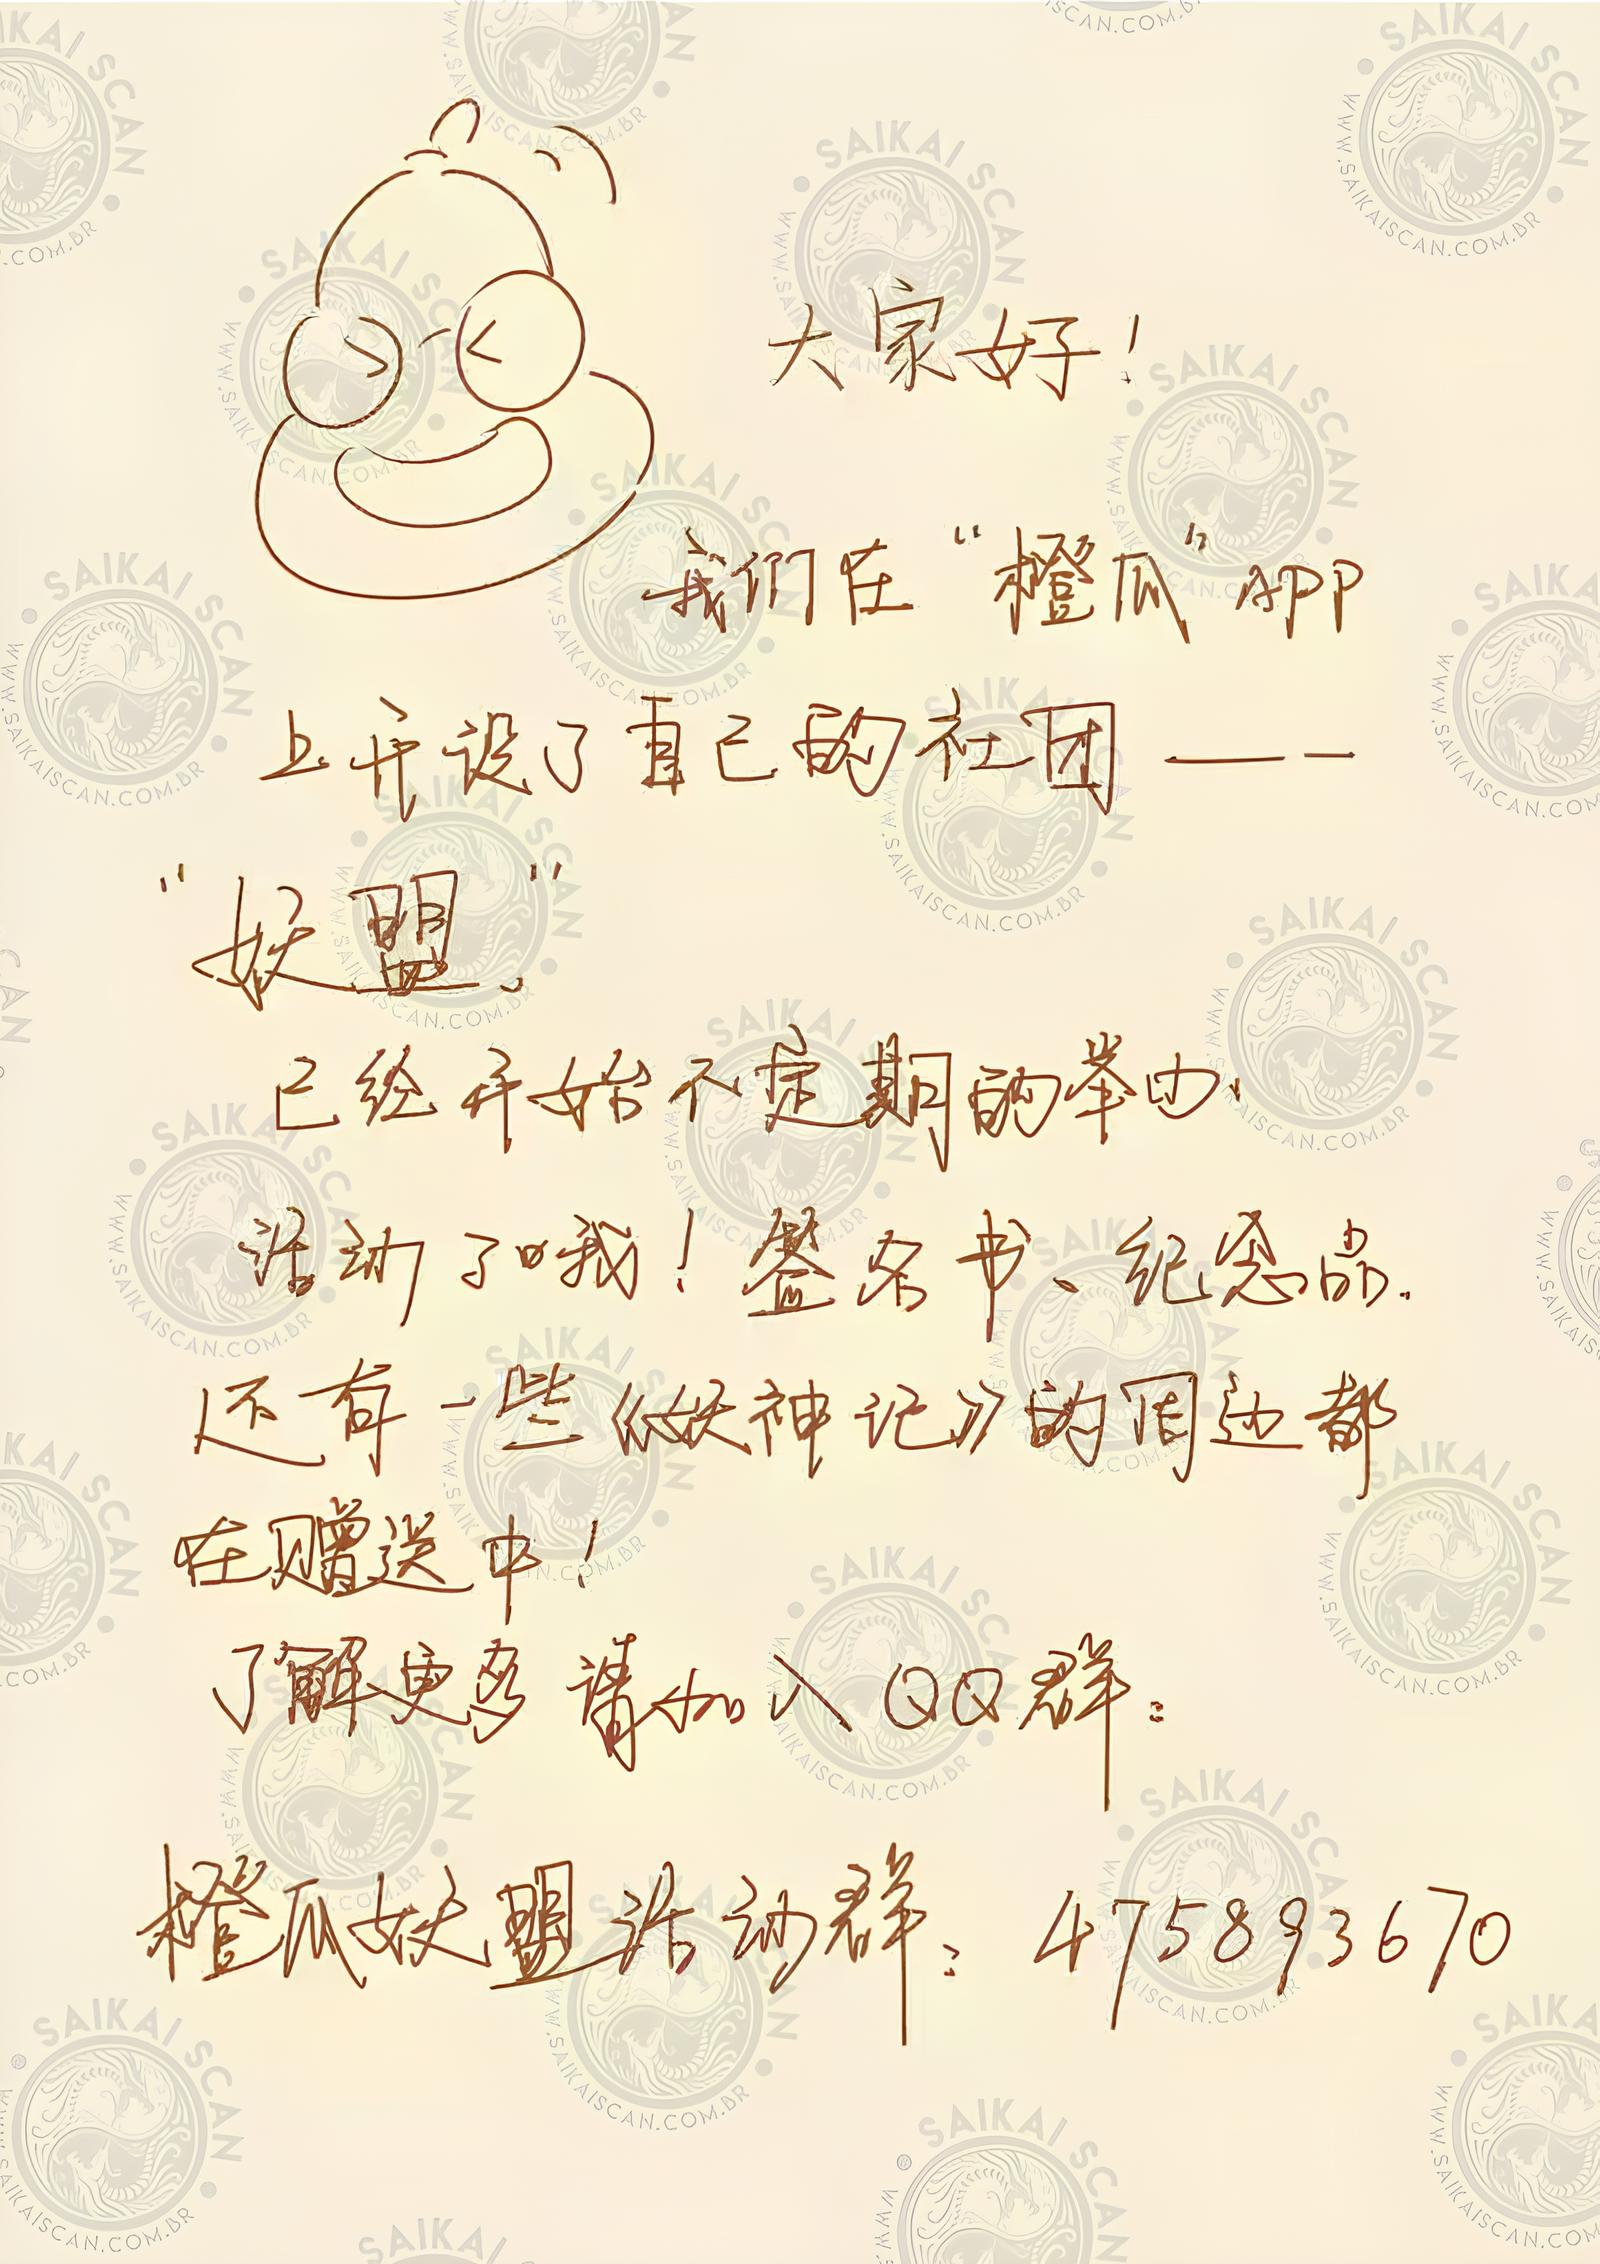 大家好!
我们在“橙瓜”APP
上开设了自己的社团——
“妖盟”.
已经开始不定期的举办
活动了哦!签名书、纪念品.
还有一些《妖神记》的周边都
在赠送中!
了解更多请加入QQ群:
橙瓜妖盟活动群: 475893670
SAIKAI SCAN
WWW.SAIKAISCAN.COM.BR